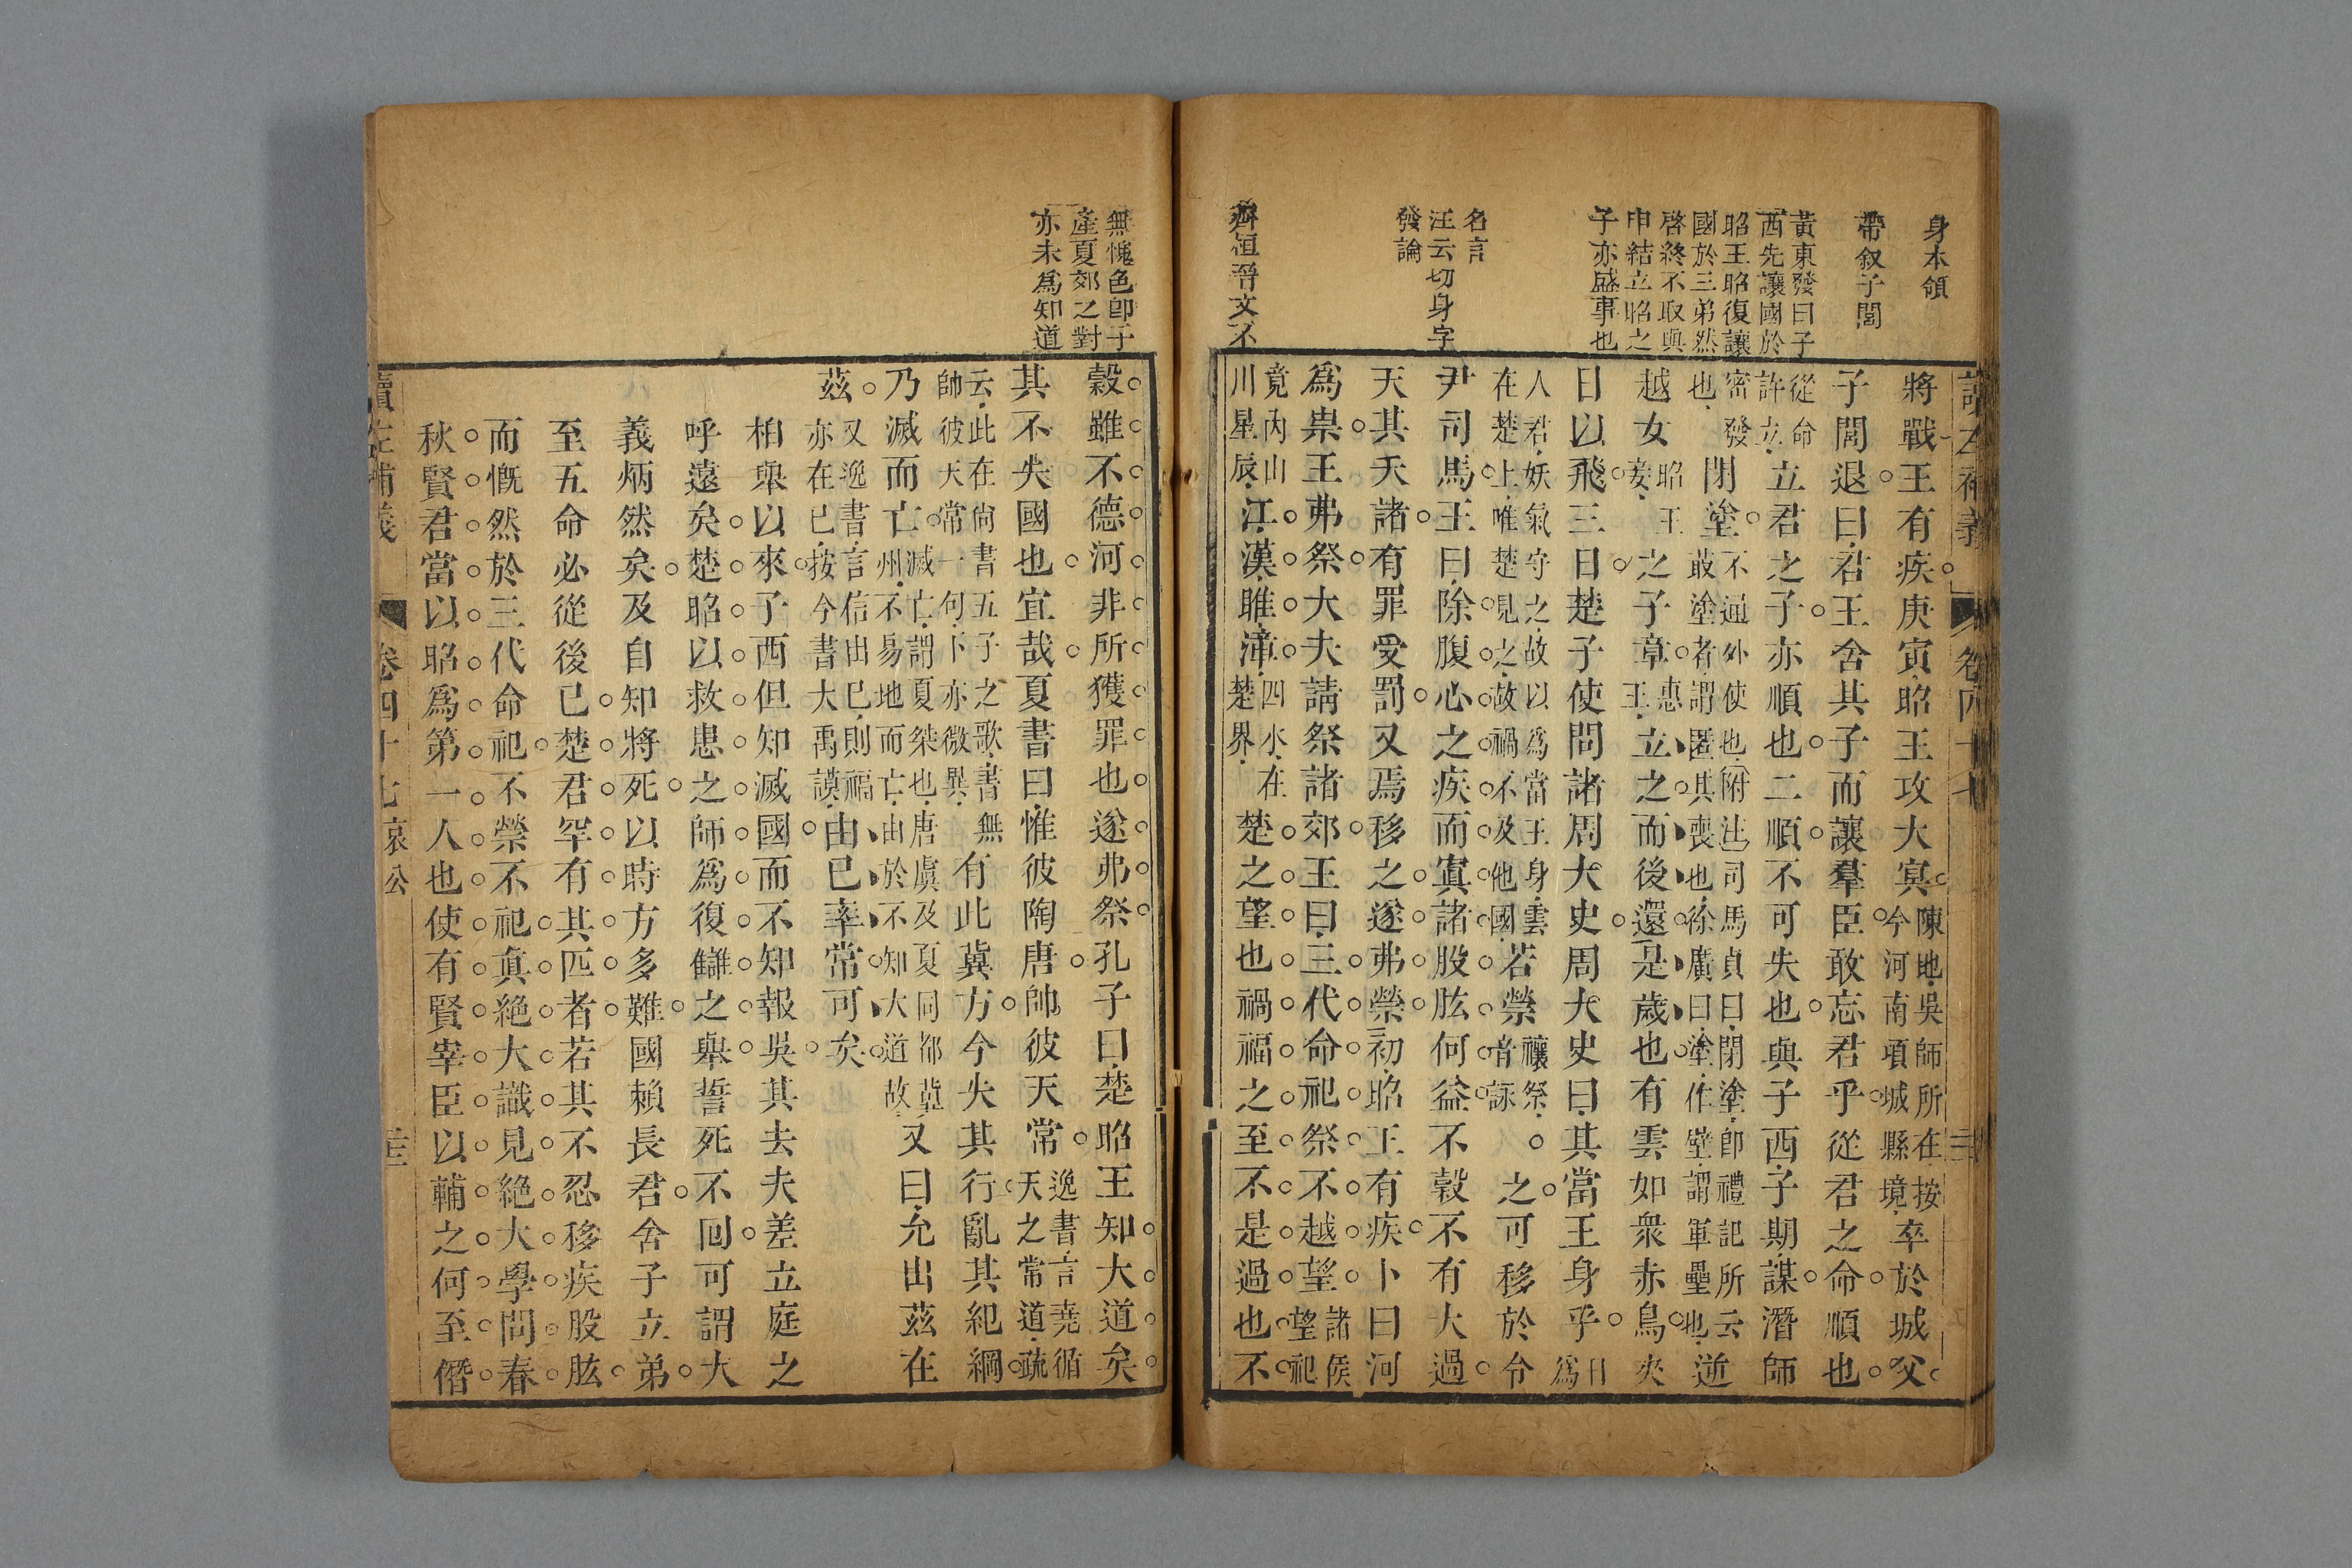 身本領
帶叙子閭
黃東發曰子
西先讓國於
昭王昭復讓
國於三弟然
啓終不取與
申結立昭之
子亦盛事也
名言
汪云切身字
發論
齊桓晉文不
讀左補義 卷四十七
將戰王有疾庚寅昭王攻大㝠陳地吳師所在按今河南項城縣境卒於城父
子閭退曰君王舍其子而讓羣臣敢忘君乎從君之命順也
從命許立立君之子亦順也二順不可失也與子西子期謀潛師
密發也閉塗不通外使也附注司馬貞曰閉塗即禮記所云敢塗者謂匿其喪也徐廣曰塗作壁謂軍壘也逆
越女昭王妾之子章惠王立之而後還是歲也有雲如衆赤鳥夾
日以飛三日楚子使問諸周大史周大史曰其當王身乎日爲
人君妖氣守之故以爲當王身雲在楚上唯楚見之故禍不及他國若禜禳祭音詠之可移於令
尹司馬王曰除腹心之疾而寘諸股肱何益不穀不有大過
天其夭諸有罪受罰又焉移之遂弗禜初昭王有疾卜曰河
爲祟王弗祭大夫請祭諸郊王曰三代命祀祭不越望諸侯望祀
竟內山川星辰江漢睢漳四水在楚界楚之望也禍福之至不是過也不
無愧色即子
產夏郊之對
亦未爲知道
穀雖不德河非所獲罪也遂弗祭孔子曰楚昭王知大道矣
其不失國也宜哉夏書曰惟彼陶唐帥彼天常逸書言堯循天之常道疏
云此在尙書五子之歌書無帥彼天常一句卜亦微異有此冀方今失其行亂其紀綱
乃滅而亡滅亡謂夏桀也唐虞及夏同都冀州不易地而亡由於不知大道故又曰允出茲在
茲又逸書言信出已則福亦在已按今書大禹謨由已率常可矣
柏舉以來子西但知滅國而不知報吳其去夫差立庭之
呼遠矣楚昭以救患之師爲復讎之舉誓死不回可謂大
義炳然矣及自知將死以時方多難國賴長君舍子立弟
至五命必從後已楚君罕有其匹者若其不忍移疾股肱
而慨然於三代命祀不禜不祀眞絕大識見絕大學問春
秋賢君當以昭爲第一人也使有賢宰臣以輔之何至僭
讀左補義 卷四十七 哀公